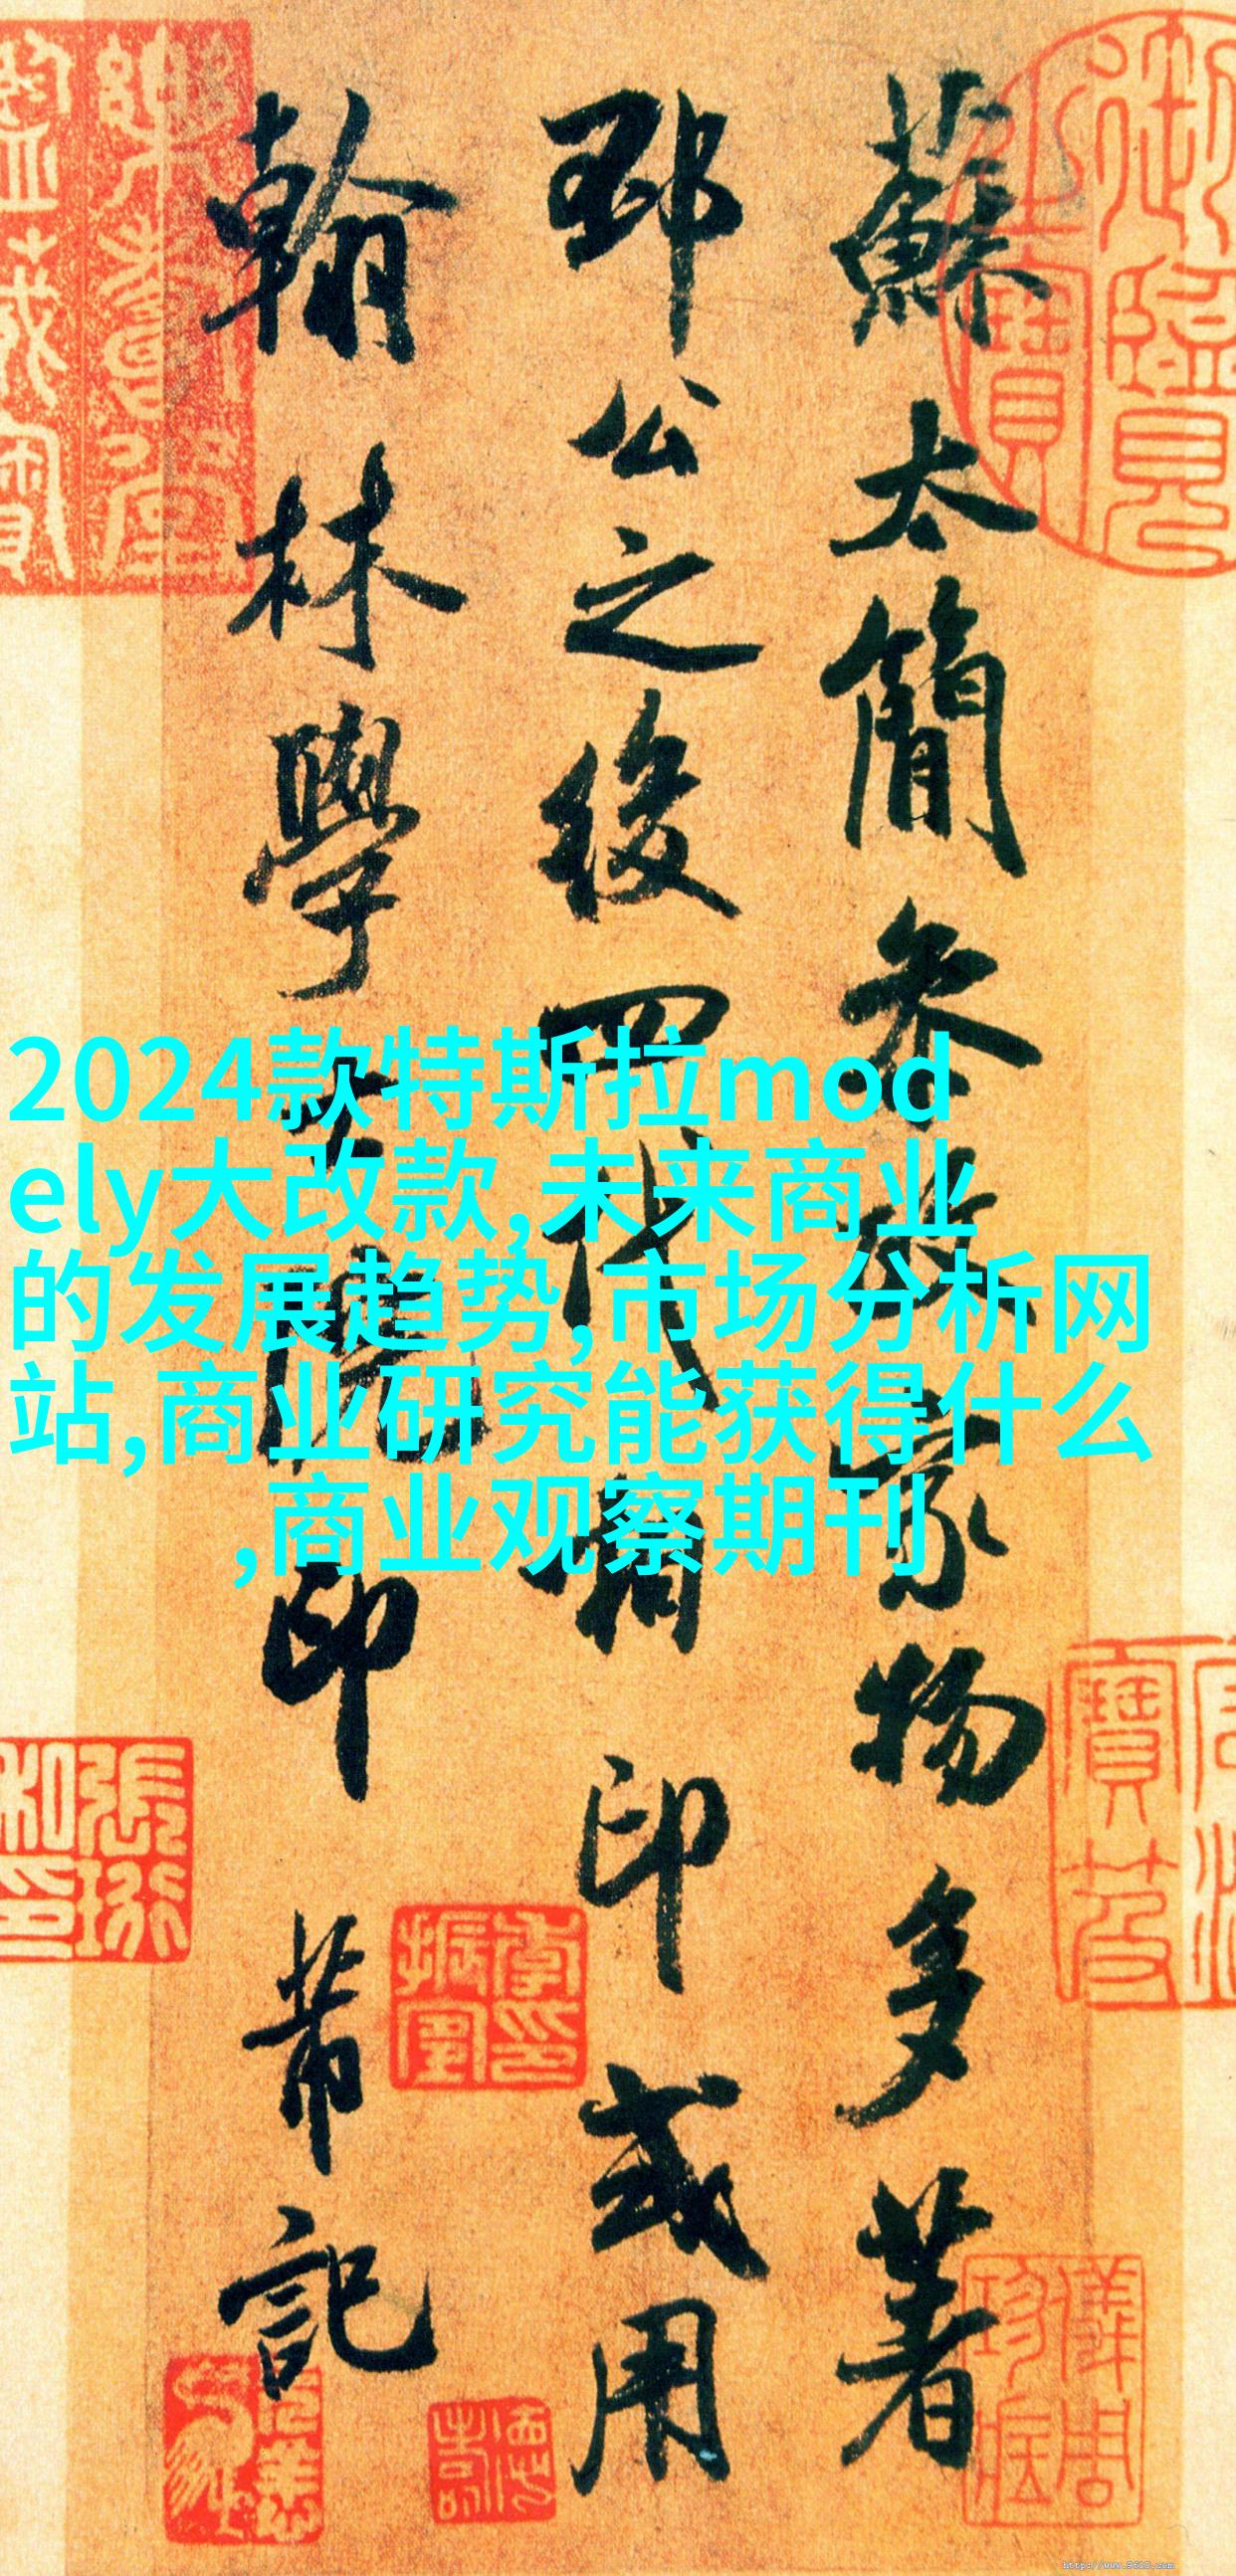 蘇太簡參政家物多著
邳公之後四代相印或用
翰林學士院印芾記
2024款特斯拉mod
ely大改款,未来商业
的发展趋势,市场分析网
站,商业研究能获得什么
,商业观察期刊
張珩私印
儀周珍藏